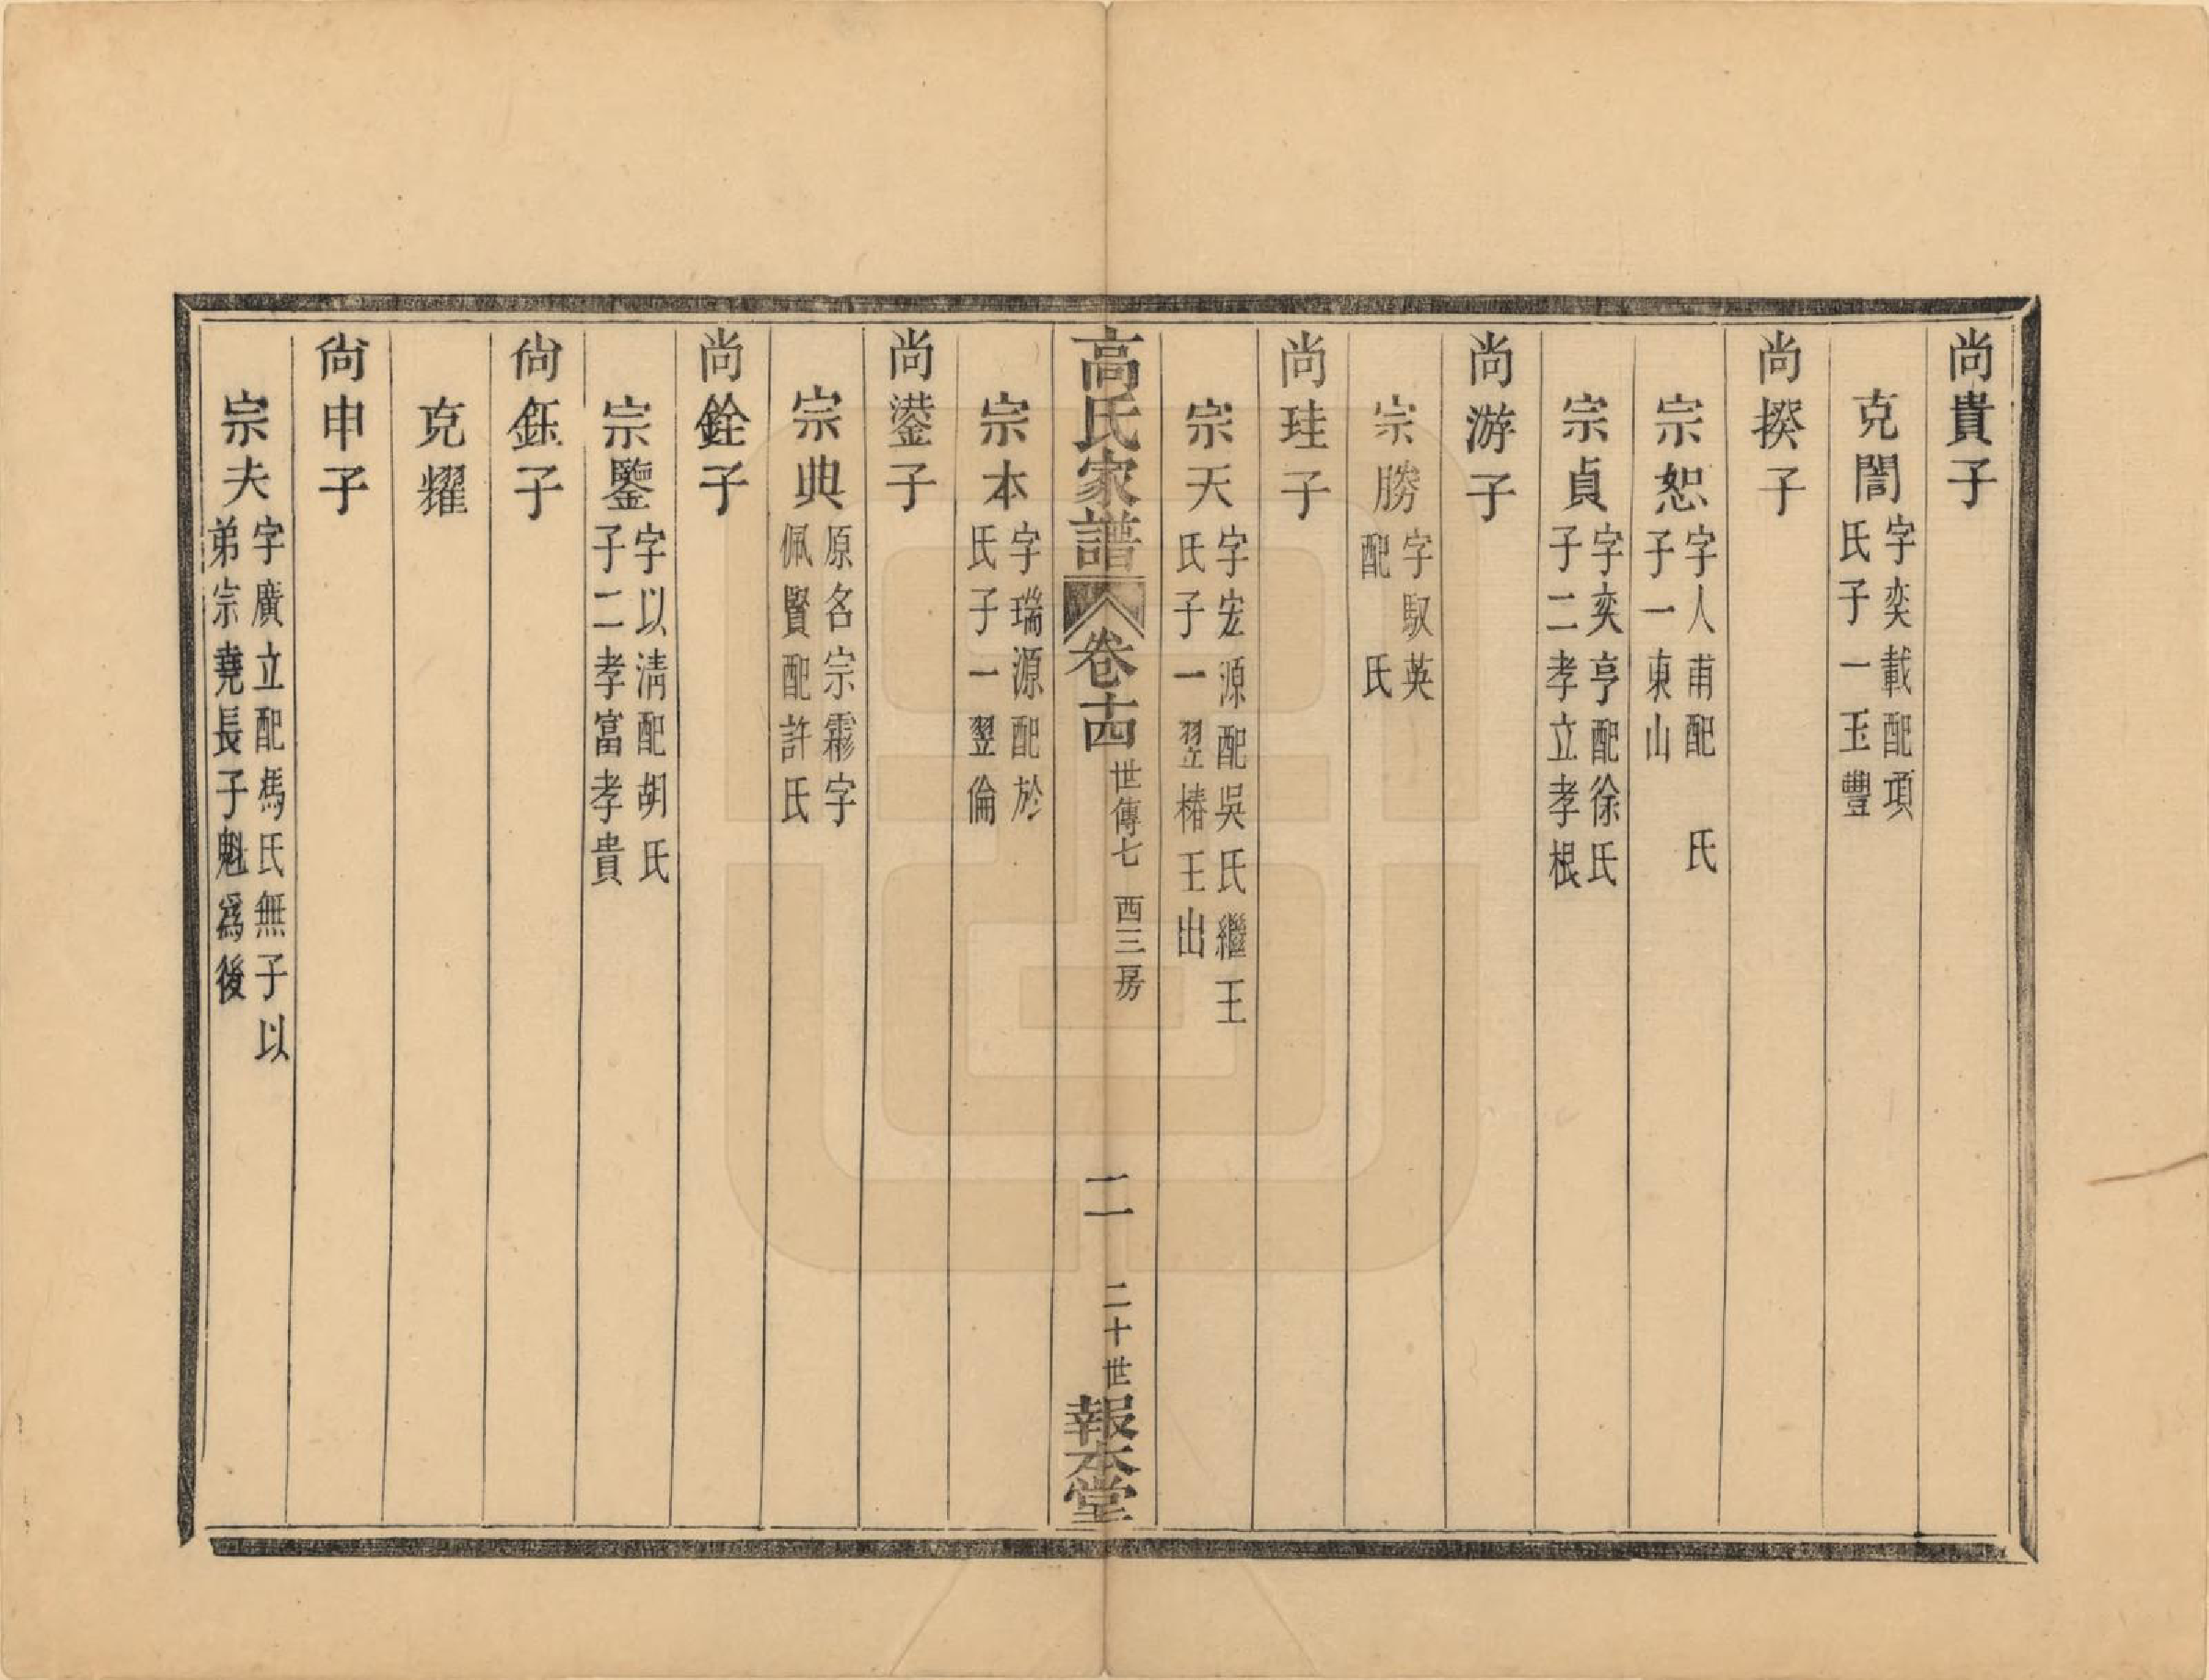 尚貴子
克誾字奕載配項
氏子一玉豐
尚揆子
宗恕字人甫配　氏
子一東山
宗貞字奕亨配徐氏
子二孝立孝根
尚游子
宗勝字馭英
配　氏
尚珪子
宗天字宏源配吳氏繼王
氏子一翌椿王出
高氏家譜 卷十四 世傳七 西三房 二 二十世 報本堂
宗本字瑞源配於
氏子一翌倫
尚蓥子
宗典原名宗霖字
佩賢配許氏
尚銓子
宗鑒字以淸配胡氏
子二孝富孝貴
尙鈺子
克耀
尙申子
宗夫字廣立配馬氏無子以
弟宗堯長子魁爲後